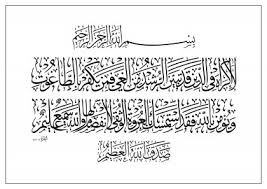 بسم الله الرحمن الرحيم
لا إكراه في الدين قد تبين الرشد من الغي فمن يكفر بالطاغوت
ويؤمن بالله فقد استمسك بالعروة الوثقى لا انفصام لها والله سميع عليم
صدق الله العظيم